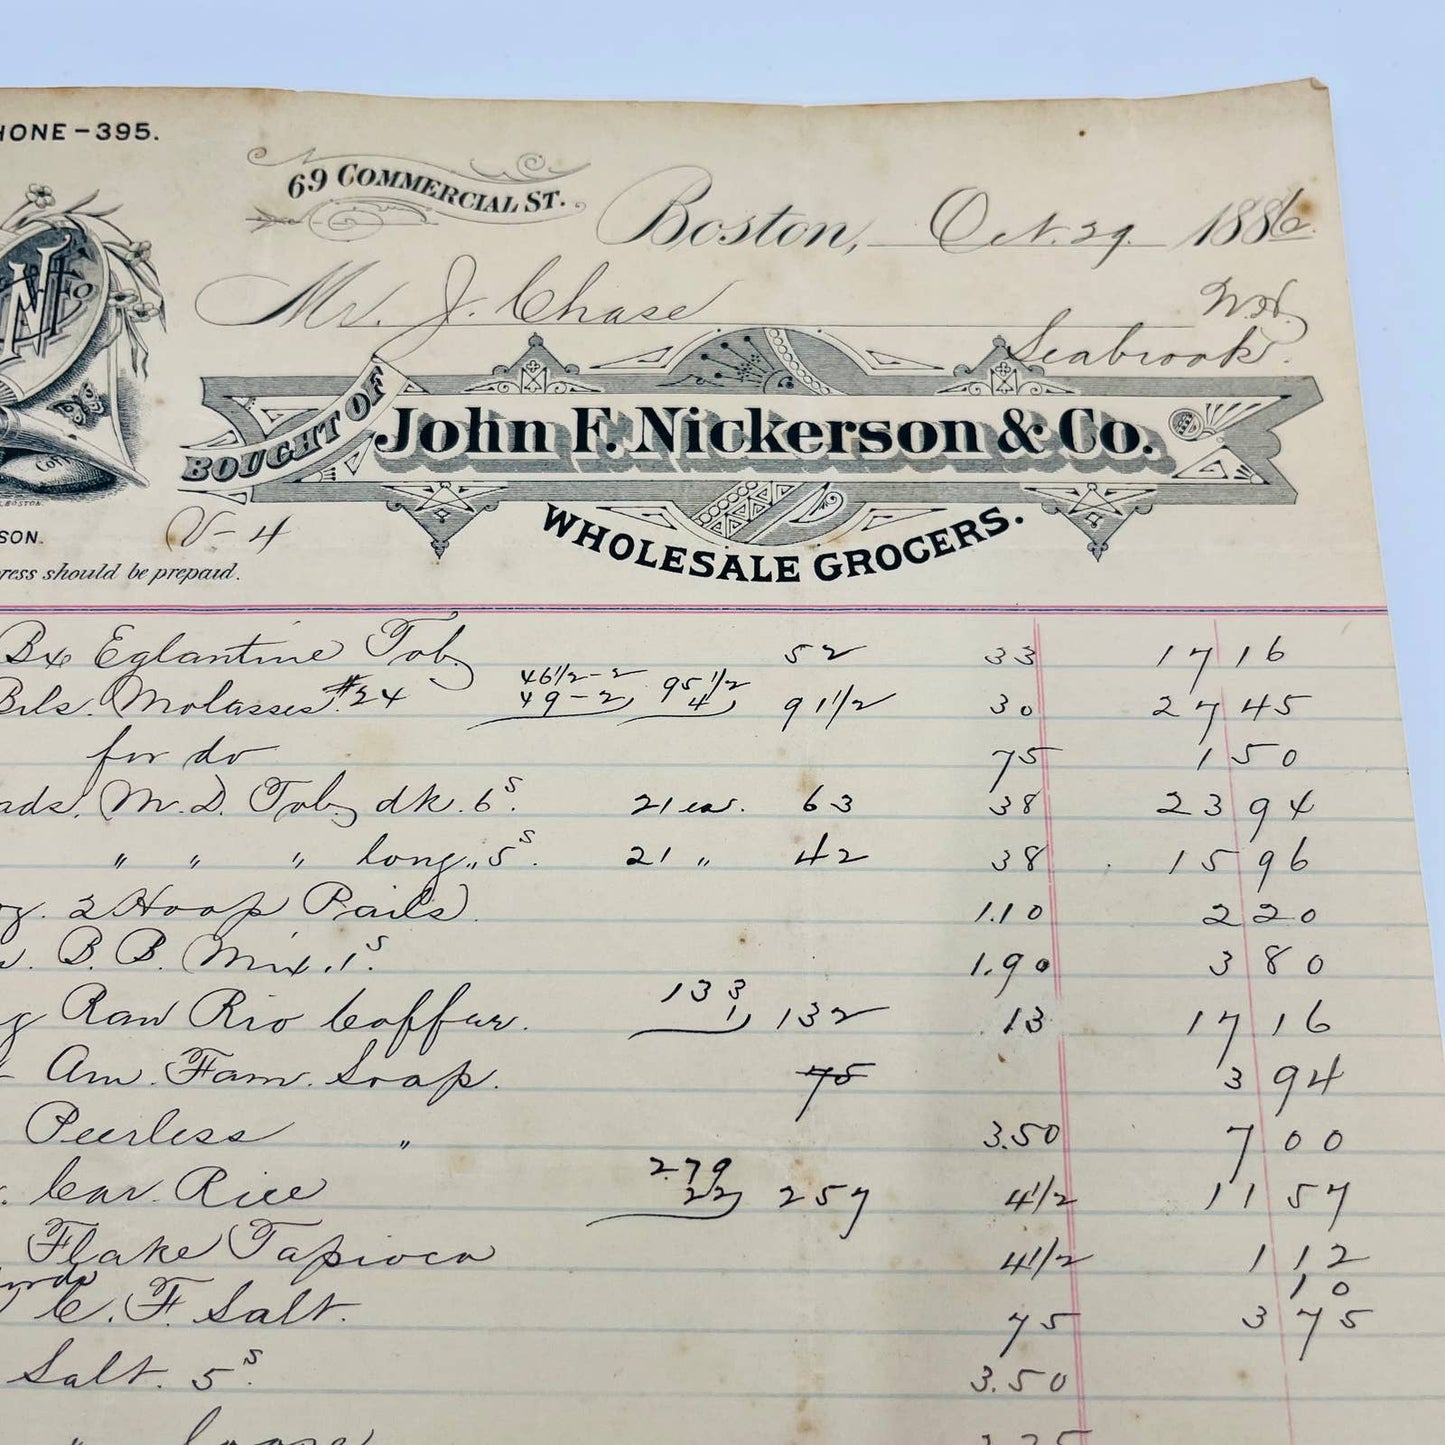 HONE-395.
69 COMMERCIAL ST.
Boston, Oct. 29. 1886.
Mr. J. Chase
N.H.
Seabrook.
BOUGHT OF
John F. Nickerson & Co.
WHOLESALE GROCERS.
SON.
V-4
ress should be prepaid.
Bx Eglantine Tob. 52 33 17 16
Bls. Molasses #24 46 1/2-2 49-2 95 1/2 4 91 1/2 30 27 45
for do 75 1 50
ads. M.D. Tob. dk. 6s. 21 ea. 63 38 23 94
" " " long " 5s. 21 " 42 38 15 96
2 Hoop Pails. 1.10 2 20
B.B. Mix. 1s. 1.90 3 80
g Raw Rio Coffee. 133 1 132 .13 17 16
Am. Fam. Soap. 75 3 94
Peerless " 3.50 7 00
Car. Rice 279 22 257 4 1/2 11 57
Flake Tapioca 4 1/2 1 12
10
C.F. Salt. 75 3 75
Salt. 5s. 3.50
" loose